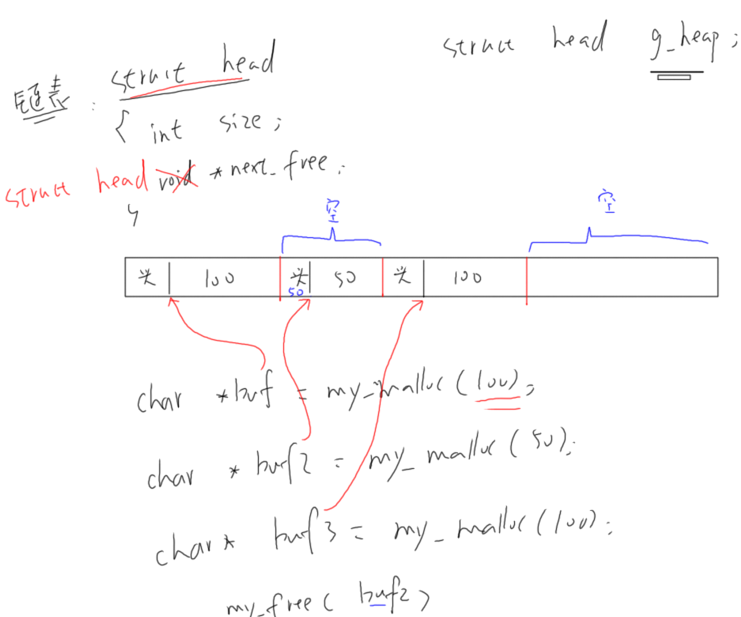 struct head g_heap;
链表: struct head
{ int size;
struct head void *next_free;
空 空
头 100 头 50 头 100
50
char *buf = my_malloc(100);
char *buf2 = my_malloc(50);
char* buf3 = my_malloc(100);
my_free( buf2)